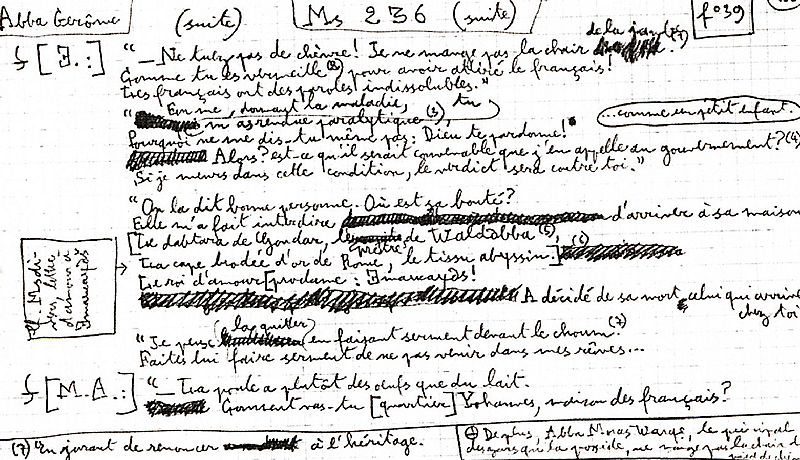 Abba Gérôme (suite) Ms 236 (suite) f°39
de la jambe (1)
[J.:] "— Ne tuez pas de chèvre! Je ne mange pas la chair
Comme tu es vermeille (2) pour avoir attiré le français!
Les français ont des paroles indissolubles."
En me donnant la maladie, tu
" m'as rendue paralytique (3),
...comme un petit enfant.
Pourquoi ne me dis-tu même pas: Dieu te pardonne!
Alors? est-ce qu'il serait convenable que j'en appelle au gouvernement? (4)
Si je meurs dans cette condition, le verdict sera contre toi."
"On la dit bonne personne. Où est sa bonté?
Elle m'a fait interdire d'arriver à sa maison
Le dabtara de Gondar, le prêtre de Waldobba (5),
La cape brodée d'or de Rome, le tissu abyssin.] (6)
Le roi d'amour [proclame:
A décidé de sa mort, celui qui arrive
chez toi
(la quitter)
"Je pense en faisant serment devant le choum. (7)
Faites lui faire serment de ne pas venir dans mes rêves...
[M.A.:] "— La poule a plutôt des œufs que du lait.
Comment vas-tu [quartier] Yohannes, maison des français?
(7) En jurant de renoncer à l'héritage.
De plus, Abba Warqé, le qui